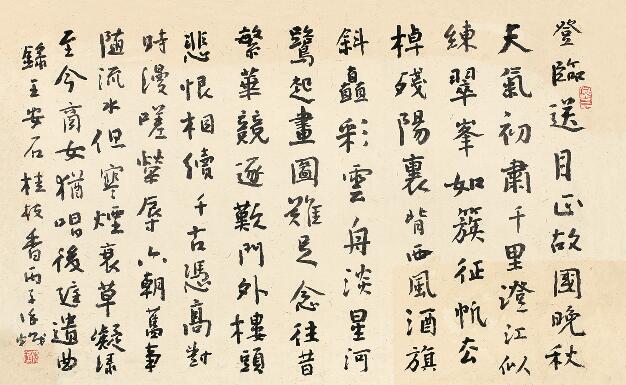 登臨送目正故國晚秋
天氣初肅千里澄江似
練翠峯如簇征帆去
棹殘陽裏背西風酒旗
斜矗彩雲舟淡星河
鷺起畫圖難足念往昔
繁華競逐歎門外樓頭
悲恨相續千古憑高對
時漫嗟榮辱六朝舊事
隨流水但寒煙衰草凝綠
至今商女猶唱後庭遺曲
錄王安石桂枝香丙子